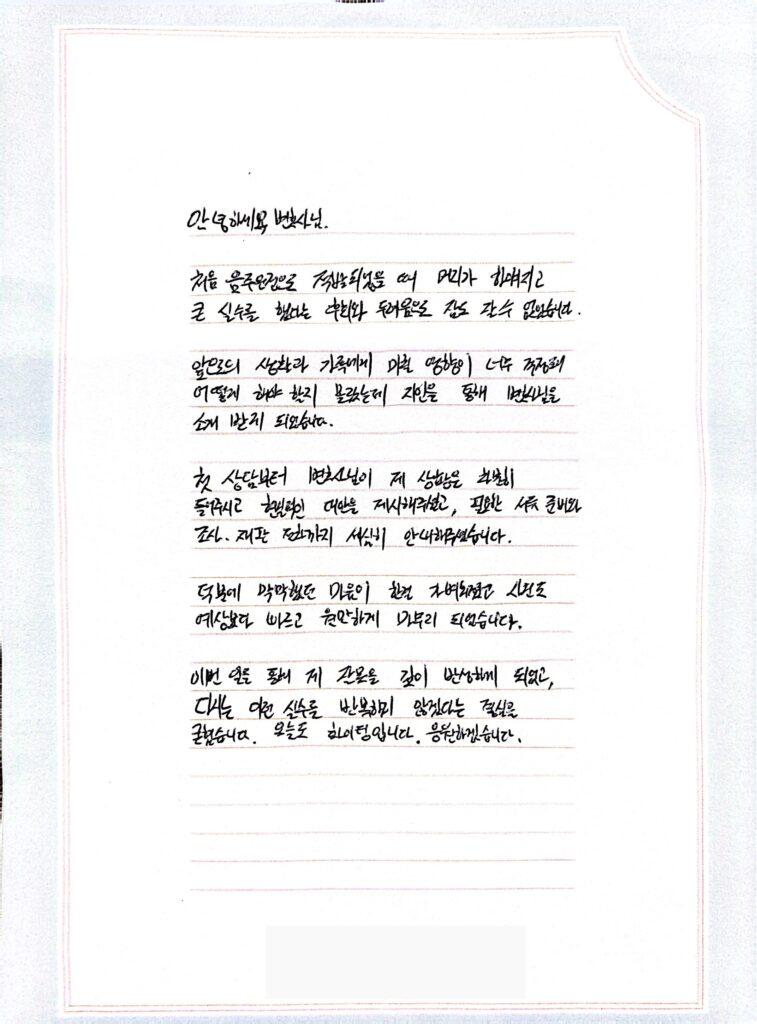 안녕하세요, 변호사님.
처음 음주운전으로 적발되었을 때 머리가 하얘지고
큰 실수를 했다는 후회와 두려움으로 잠도 잘 수 없었습니다.
앞으로의 생활과 가족에게 미칠 영향이 너무 걱정돼
어떻게 해야 할지 몰랐는데 지인을 통해 변호사님을
소개 받게 되었습니다.
첫 상담부터 변호사님이 제 상황을 차분히
들어주시고 현실적인 대안을 제시해주셨고, 필요한 서류 준비와
조사, 재판 절차까지 세심히 안내해주셨습니다.
덕분에 막막했던 마음이 한결 가벼워졌고 사건도
예상보다 빠르고 원만하게 마무리 되었습니다.
이번 일을 통해 제 잘못을 깊이 반성하게 되었고,
다시는 이런 실수를 반복하지 않겠다는 결심을
굳혔습니다. 오늘도 화이팅입니다. 응원하겠습니다.